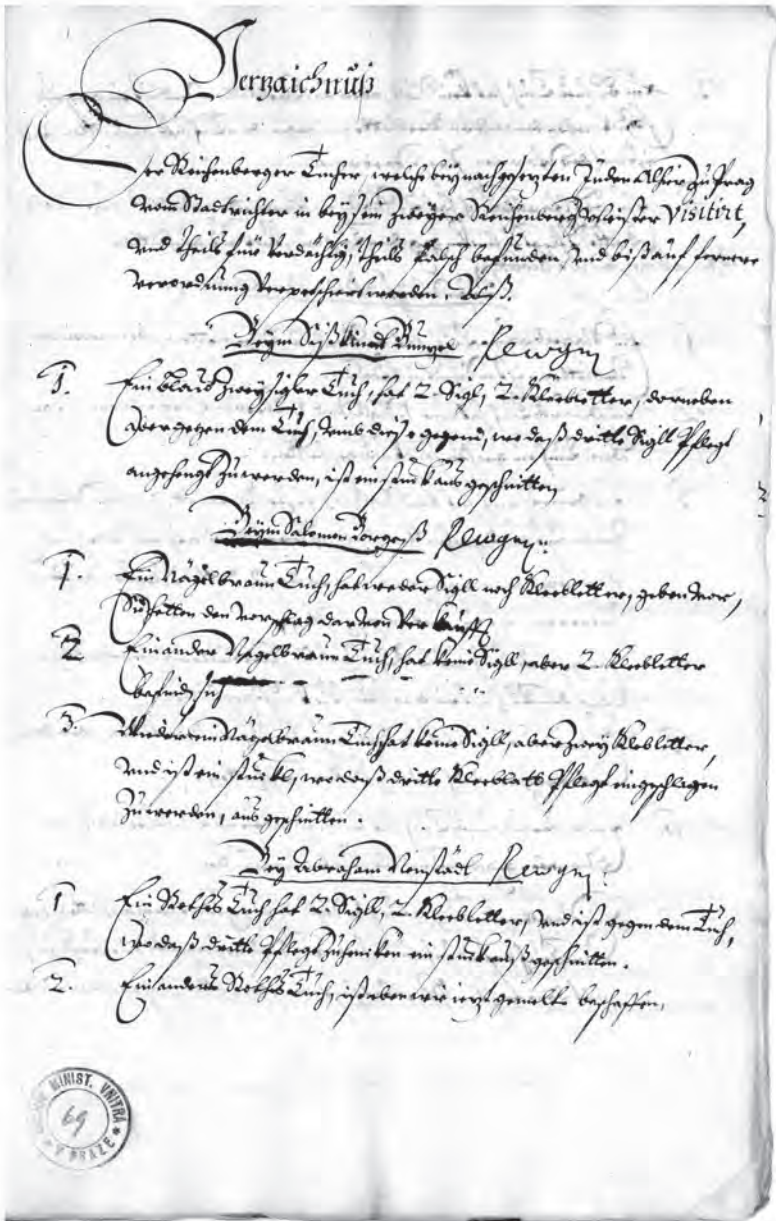 Verzaichnuß
Der Reichenberger Tücher, welche bey nachgesezten Juden Alhier zu Prag
vom Stadtrichter in beysein zweyer Reichenberg. Meister visitirt,
vnd theils für verdächtig, theils falsch befunden, vnd biß auf fernere
verordnung verpetschirt worden.
Beym Süßkind
1. Ein blaw zwey sigler Tuch, hat 2. Sigl, 2. Kleebletter, darneben
aber gegen dem Tuch, vmb diese gegend, wo daß dritte Sigll Pflegt
angehengt zu werden, ist ein stuck aus geschnitten
Beym Salomon
1. Ein Nägelbraun Tuch, hat weder Sigll noch Kleebletter, geben vor,
Sie hetten den vorschlag darvon verkaufft
2. Ein ander Nagelbraun Tuch, hat keine Sigll, aber 2. Kleebletter
befind sich
3. Wieder ein Nägelbraun Tuch hat keine Sigll, aber zwey Klebletter,
vnd ist ein stückl, wo daß dritte Kleeblatt Pflegt eingeschlagen
zu werden, aus geschnitten.
Bey Abraham Neustädl
1 Ein Rothes Tuch hat 2. Sigll, 2. Kleebletter, vnd ist gegen dem Tuch,
wo daß dritte Pflegt ein stuck auß geschnitten.
2. Ein anders Rothes Tuch, ist eben wie iezt gemelte beschaffen,
MINIST. VNITRA
69
V PRAZE